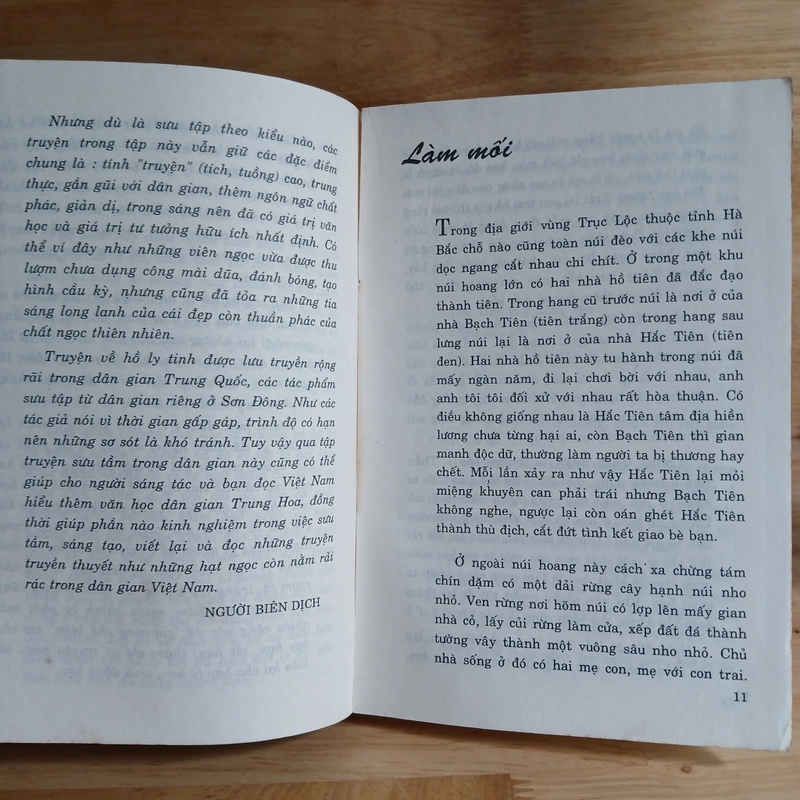 Nhưng dù là sưu tập theo kiểu nào, các
truyện trong tập này vẫn giữ các đặc điểm
chung là : tính "truyện" (tích, tuồng) cao, trung
thực, gần gũi với dân gian, thêm ngôn ngữ chất
phác, giản dị, trong sáng nên đã có giá trị văn
học và giá trị tư tưởng hữu ích nhất định. Có
thể ví đây như những viên ngọc vừa được thu
lượm chưa dụng công mài dũa, đánh bóng, tạo
hình cầu kỳ, nhưng cũng đã tỏa ra những tia
sáng long lanh của cái đẹp còn thuần phác của
chất ngọc thiên nhiên.
Truyện về hồ ly tinh được lưu truyền rộng
rãi trong dân gian Trung Quốc, các tác phẩm
sưu tập từ dân gian riêng ở Sơn Đông. Như các
tác giả nói vì thời gian gấp gáp, trình độ có hạn
nên những sơ sót là khó tránh. Tuy vậy qua tập
truyện sưu tầm trong dân gian này cũng có thể
giúp cho người sáng tác và bạn đọc Việt Nam
hiểu thêm văn học dân gian Trung Hoa, đồng
thời giúp phần nào kinh nghiệm trong việc sưu
tầm, sáng tạo, viết lại và đọc những truyện
truyền thuyết như những hạt ngọc còn nằm rải
rác trong dân gian Việt Nam.
NGƯỜI BIÊN DỊCH
Làm mối
Trong địa giới vùng Trục Lộc thuộc tỉnh Hà
Bắc chỗ nào cũng toàn núi đèo với các khe núi
dọc ngang cắt nhau chi chít. Ở trong một khu
núi hoang lớn có hai nhà hồ tiên đã đắc đạo
thành tiên. Trong hang cũ trước núi là nơi ở của
nhà Bạch Tiên (tiên trắng) còn trong hang sau
lưng núi lại là nơi ở của nhà Hắc Tiên (tiên
đen). Hai nhà hồ tiên này tu hành trong núi đã
mấy ngàn năm, đi lại chơi bời với nhau, anh
anh tôi tôi đối xử với nhau rất hòa thuận. Có
điều không giống nhau là Hắc Tiên tâm địa hiền
lương chưa từng hại ai, còn Bạch Tiên thì gian
manh độc dữ, thường làm người ta bị thương hay
chết. Mỗi lần xảy ra như vậy Hắc Tiên lại mỏi
miệng khuyên can phải trái nhưng Bạch Tiên
không nghe, ngược lại còn oán ghét Hắc Tiên
thành thù địch, cắt đứt tình kết giao bè bạn.
Ở ngoài núi hoang này cách xa chừng tám
chín dặm có một dải rừng cây hạnh núi nho
nhỏ. Ven rừng nơi hõm núi có lợp lên mấy gian
nhà cỏ, lấy củi rừng làm cửa, xếp đất đá thành
tường vây thành một vuông sâu nho nhỏ. Chủ
nhà sống ở đó có hai mẹ con, mẹ với con trai.
11